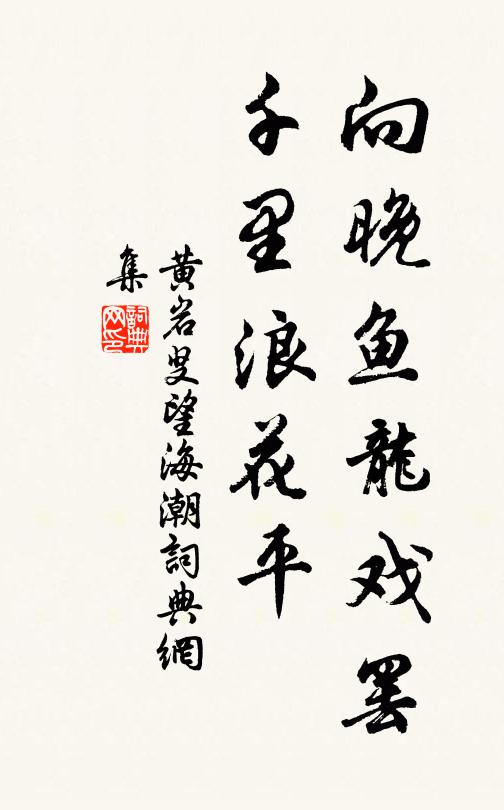 向晚鱼龍戏罢
千里浪花平
黄岩叟望海潮詞典網
集
詞典
网印